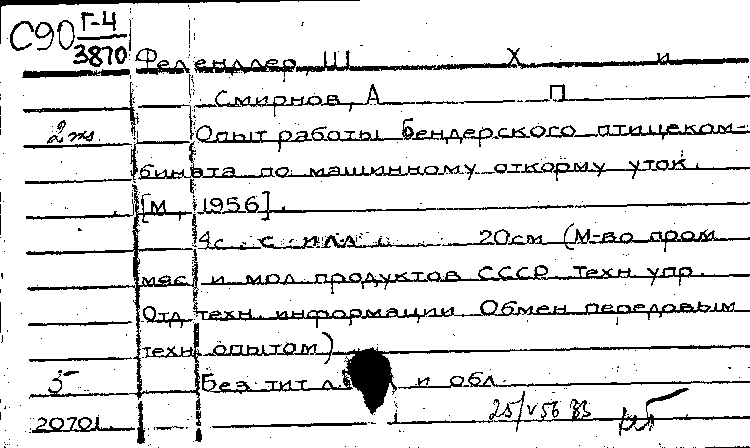 С90 Г-4
3870
Фелендлер, Ш Х и
Смирнов, А П
2 тя. Опыт работы Бендерского птицеком-
бината по машинному откорму уток.
[М, 1956].
4с. с илл. 20см (М-во пром
мяс и мол. продуктов СССР Техн упр.
Отд техн. информации Обмен передовым
техн опытом)
5- Без тит л и обл
20701. 25/V 56